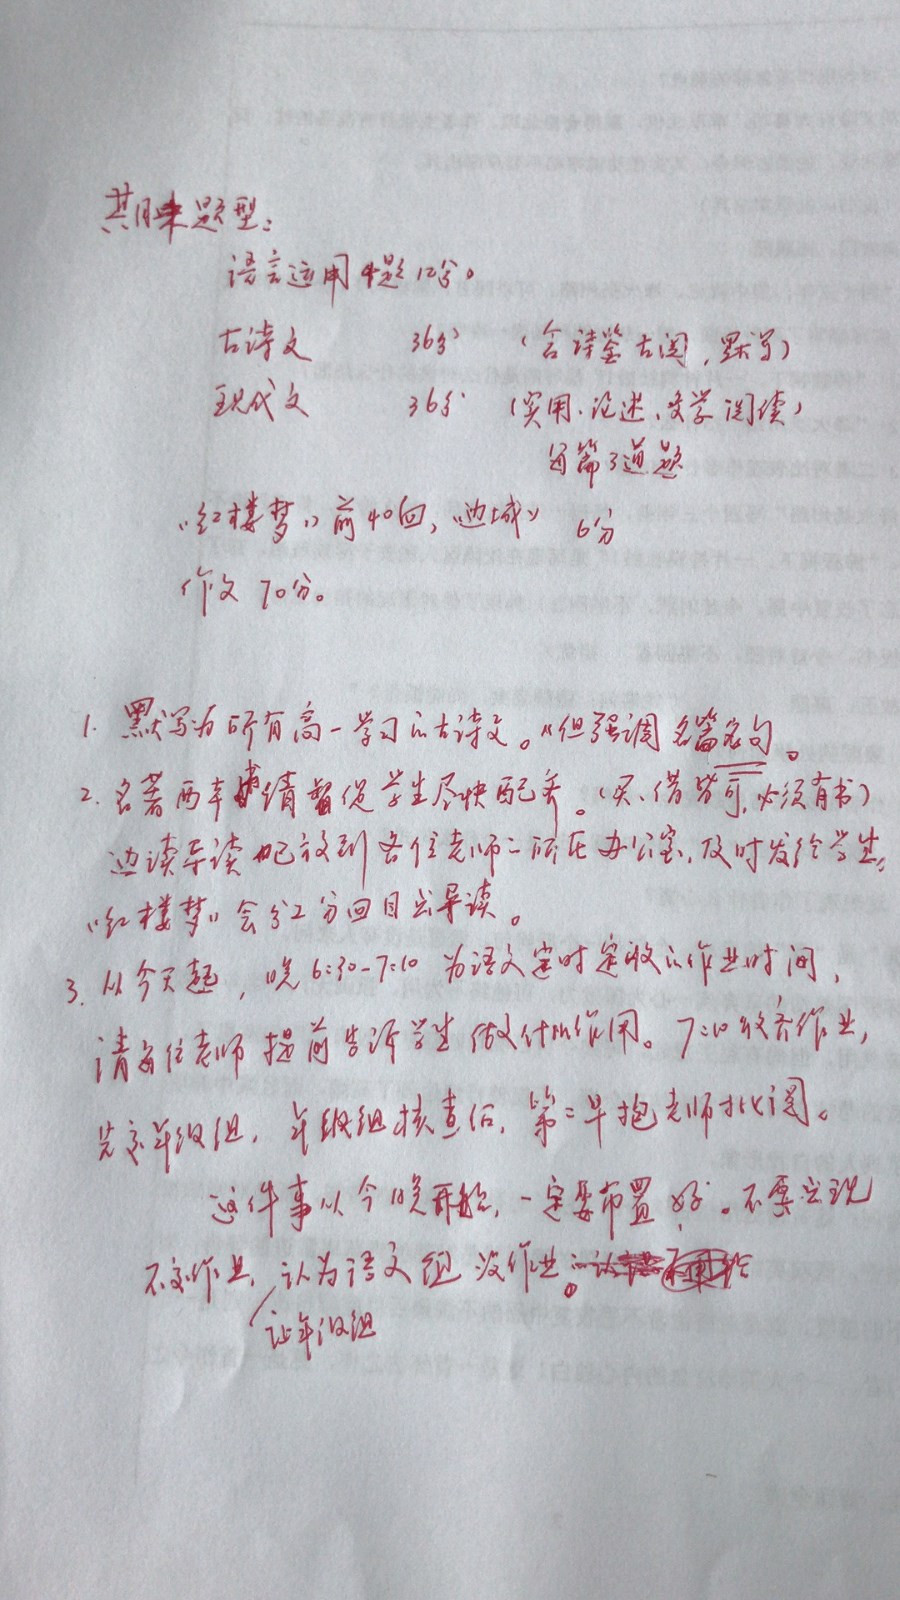 期末题型：
语言运用4题12分。
古诗文 36分 （含诗鉴古阅，默写）
现代文 36分 （实用、论述、文学阅读）
每篇3道题
《红楼梦》前40回，《边城》 6分
作文 70分。
1. 默写为所有高一学习的古诗文。但强调名篇名句。
2. 名著两本 请督促学生尽快配齐。（买、借皆可，必须有书）
边读导读 已放到各位老师所在办公室，及时发给学生。
《红楼梦》会分回目出导读。
3. 从今天起，晚6:30-7:10 为语文定时定收的作业时间，
请每位老师提前告诉学生做什么作用。7:10收齐作业，
先交年级组，年级组核查后，第二早抱老师批阅。
这件事从今晚开始，一定要布置好。不要出现
不交作业，让年级组认为语文组没作业。